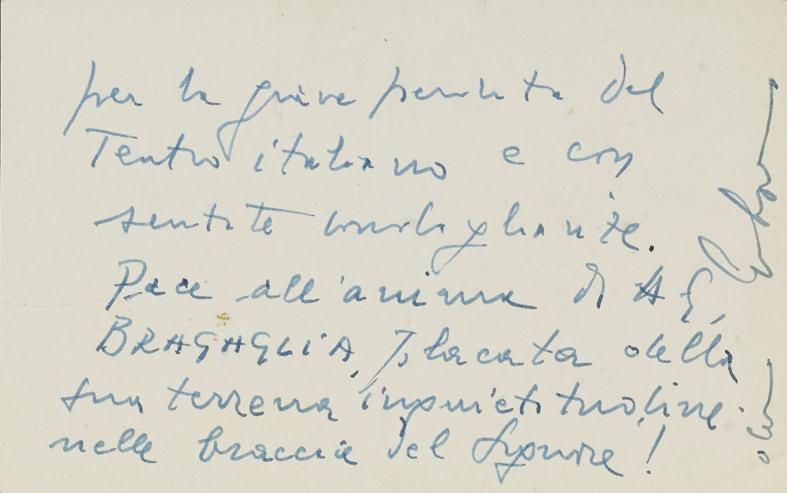 per la grave perduta del
Teatro italiano e con
sentite condoglianze.
Pace all'anima di AG.
BRAGAGLIA, placata della
sua terrena inquietitudine
nelle braccia del Signore!